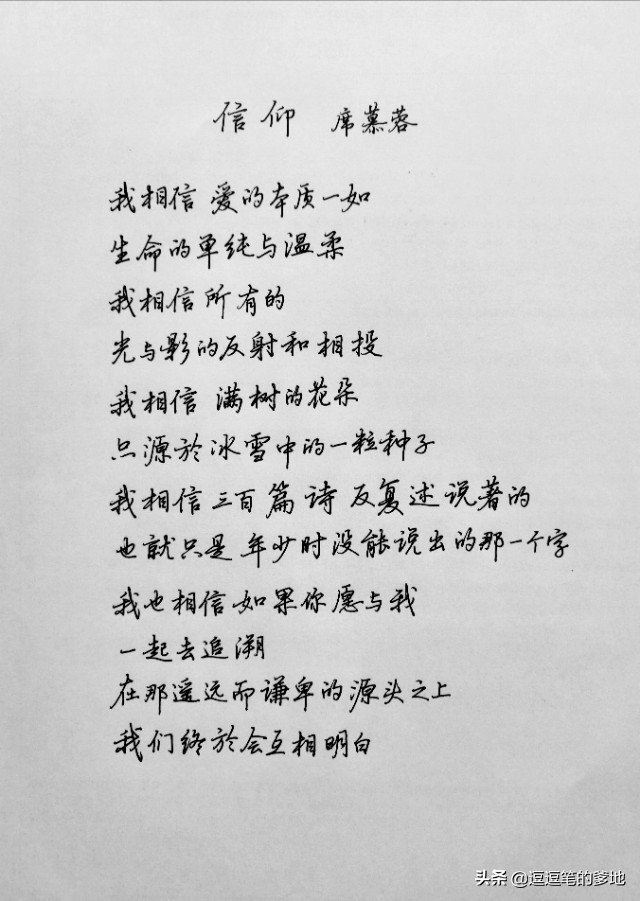 信仰 席慕蓉
我相信 爱的本质一如
生命的单纯与温柔
我相信所有的
光与影的反射和相投
我相信 满树的花朵
只源於冰雪中的一粒种子
我相信三百篇诗 反复述说著的
也就只是年少时没能说出的那一个字
我也相信如果你愿与我
一起去追溯
在那遥远而谦卑的源头之上
我们终於会互相明白
头条 @逗逗笔的爹地